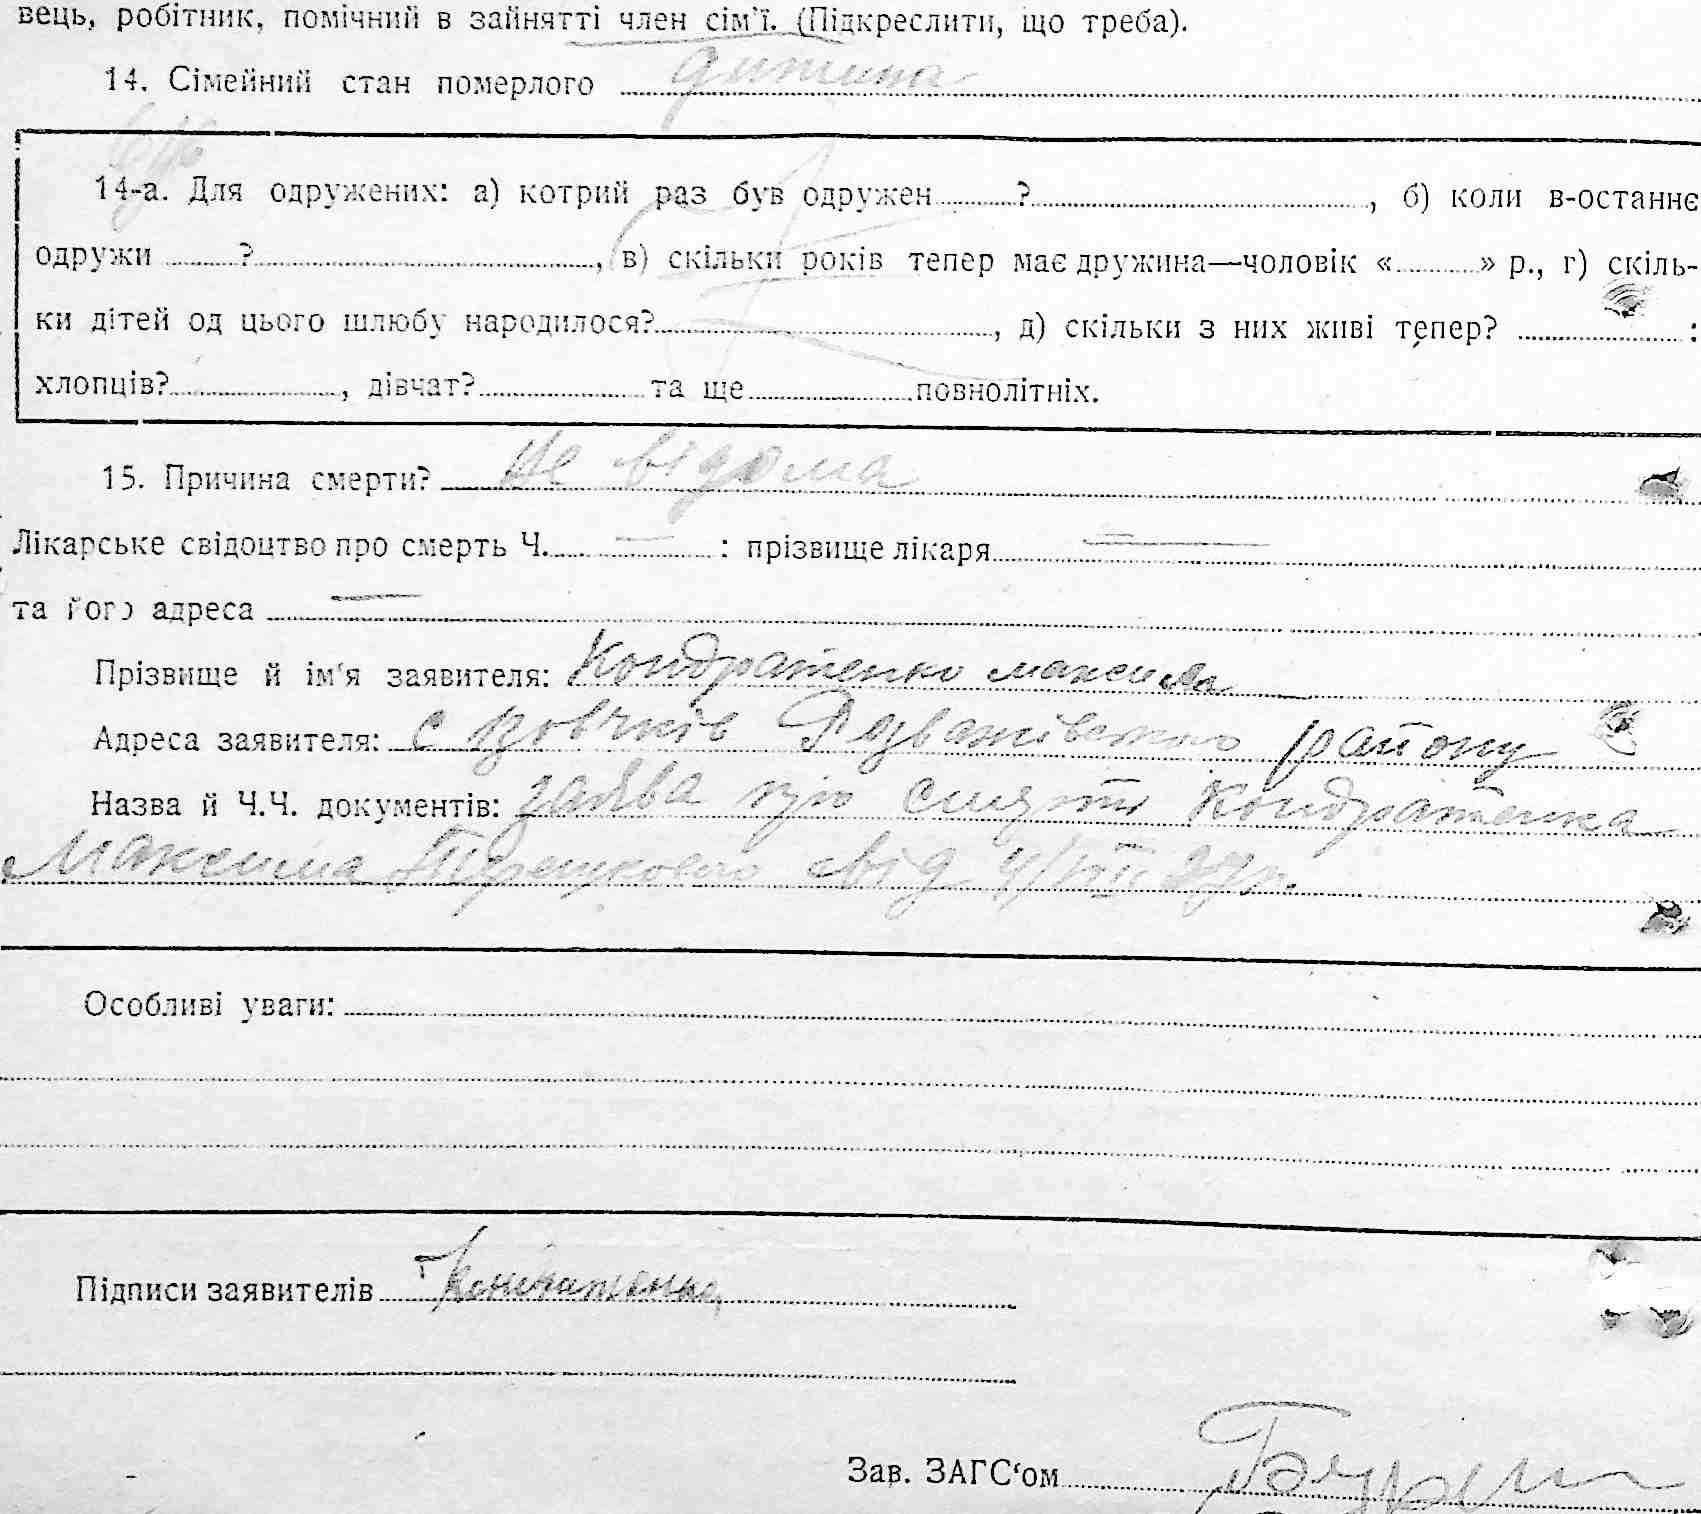 вець, робітник, помічний в зайнятті член сім'ї. (Підкреслити, що треба).
14. Сімейний стан померлого дитина
14-а. Для одружених: а) котрий раз був одружен ? , б) коли в-останнє
одружи ? , в) скільки років тепер має дружина—чоловік « » р., г) скіль-
ки дітей од цього шлюбу народилося? , д) скільки з них живі тепер? :
хлопців? , дівчат? та ще повнолітніх.
15. Причина смерти? Не відома
Лікарське свідоцтво про смерть Ч. — : прізвище лікаря —
та його адреса —
Прізвище й ім'я заявителя: Кондратенко максима
Адреса заявителя: с Вовчків Розважівського району
Назва й Ч.Ч. документів: заява про смерть Кондратенка
Максима від 4/VIII 27р.
Особливі уваги:
Підписи заявителів
Зав. ЗАГС'ом